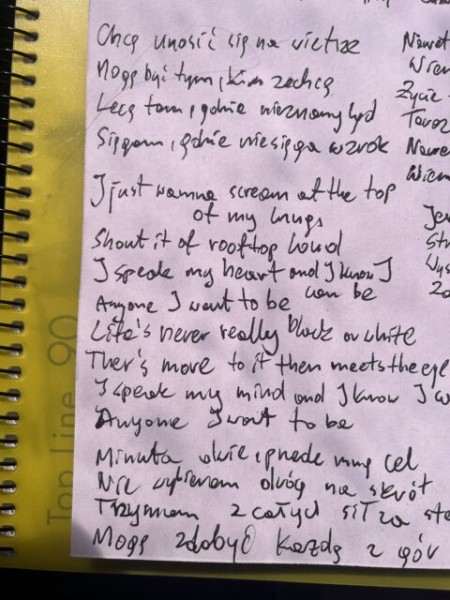 Chcę unosić się na wietrze
Mogę być tym, kim zechcę
Lecę tam, gdzie nieznany ląd
Sięgam, gdzie nie sięga wzrok
I just wanna scream at the top
of my lungs
Shout it of rooftop loud
I speak my heart and I know I
can be
Anyone I want to be
Life's never really black or white
Ther's more to it then meets the eye
I speak my mind and I know I
Anyone I want to be
Minuta, przede mną cel
Nie wybieram drogę na skrót
Trzymam z całych sił za
Mogę zdobyć każdą z gór
Nawet
Życie
Teraz
Nawet
Top Line 90